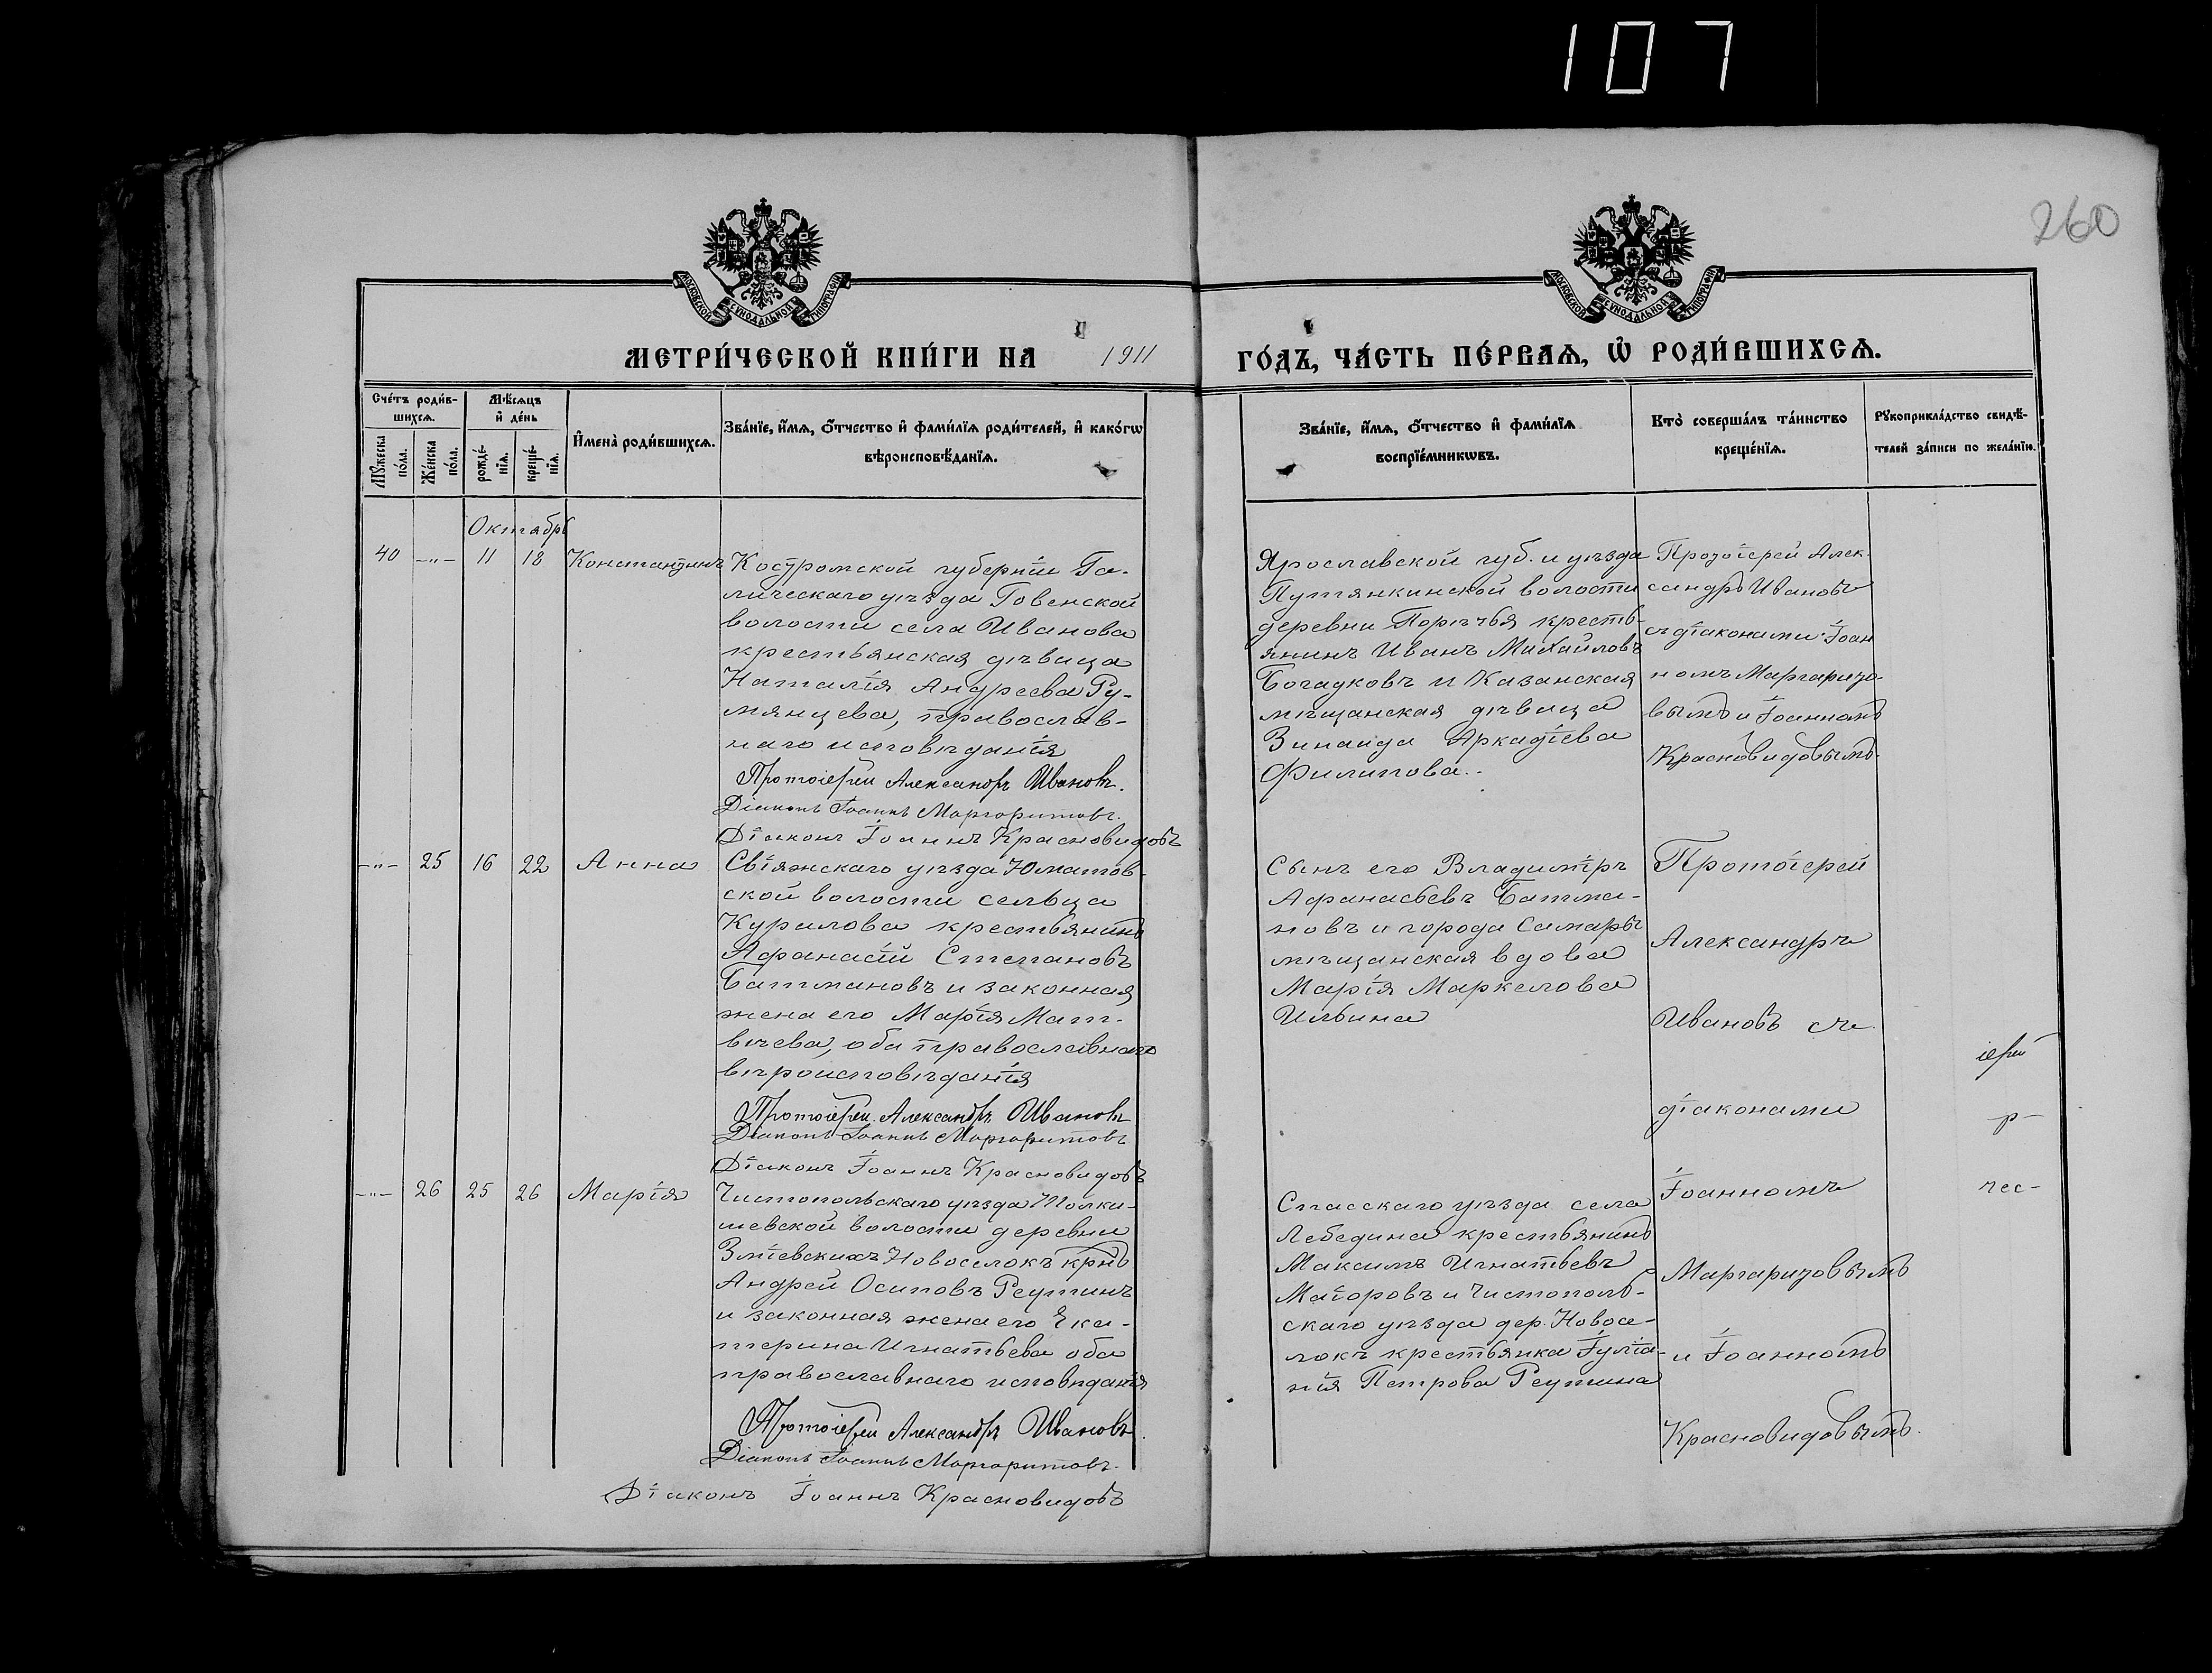 107
260
МОСКОВСКОЙ СѴНОДАЛЬНОЙ ТИПОГРАФІИ
МОСКОВСКОЙ СѴНОДАЛЬНОЙ ТИПОГРАФІИ
МЕТРИ́ЧЕСКОЙ КНИ́ГИ НА 1911 ГО́ДЪ, ЧА́СТЬ ПЕ́РВАѦ, Ѡ҆ РОДИ́ВШИХСѦ.
Сче́тъ роди́в-
шихсѧ.
Мѣ́сѧцъ
и҆ де́нь
Мꙋ́жеска
по́ла.
Же́нска
по́ла.
рожде́-
нїѧ.
креще́-
нїѧ.
И҆мена̀ роди́вшихсѧ.
Зва́нїе, и҆́мѧ, ѻ҆́тчество и҆ фами́лїѧ роди́телей, и҆ како́гѡ
вѣроисповѣ́данїѧ.
Зва́нїе, и҆́мѧ, ѻ҆́тчество и҆ фами́лїѧ
воспрїе́мникѡвъ.
Кто̀ соверша́лъ та́инство
креще́нїѧ.
Рꙋкоприкла́дство свидѣ́-
телей за́писи по жела́нїю.
Октябрь
40 -„- 11 18 Константинъ
Костромской губерніи Га-
личскаго уѣзда Говенской
волости села Иванова
крестьянская дѣвица
Наталія Андреева Ру-
мянцева, православ-
наго исповѣданія
Протоіерей Александръ Ивановъ.
Діаконъ Іоаннъ Маргаритовъ.
Діаконъ Іоаннъ Красновидовъ
Ярославской губ. и уѣзда
Путянкинской волости
деревни Порѣчья кресть-
янинъ Иванъ Михайловъ
Богадковъ и Казанская
мѣщанская дѣвица
Зинаида Аркадіева
Филипова.
Протоіерей Алек-
сандръ Ивановъ
съ діаконами Іоан
номъ Маргарито-
вымъ и Іоанномъ
Красновидовымъ.
-„- 25 16 22 Анна
Свіяжскаго уѣзда Юматов-
ской волости сельца
Курилова крестьянинъ
Афанасій Степановъ
Батмановъ и законная
жена его Марія Мат-
вѣева, оба православнаго
вѣроисповѣданія
Протоіерей Александръ Ивановъ
Діаконъ Іоаннъ Маргаритовъ
Діаконъ Іоаннъ Красновидовъ
Сынъ его Владимiръ
Афанасьевъ Батма-
новъ и города Самары
мѣщанская вдова
Марія Маркелова
Ильина
Протоіерей
Александръ
Ивановъ съ
діаконами
Іоанномъ
Маргаритовымъ
и Іоанномъ
Красновидовымъ.
іерей
р-
чес-
-„- 26 25 26 Марія
Чистопольскаго уѣзда Толки-
шевской волости деревни
Зміевскихъ Новоселокъ крнъ
Андрей Осиповъ Реутинъ
и законная жена его Ека-
терина Игнатьева оба
православнаго исповѣданія
Протоіерей Александръ Ивановъ
Діаконъ Іоаннъ Маргаритовъ.
Діаконъ Іоаннъ Красновидовъ
Спасскаго уѣзда села
Лебедина крестьянинъ
Максимъ Игнатьевъ
Маіоровъ и Чистополь-
скаго уѣзда дер. Новосе-
локъ крестьянка Іуліа-
нія Петрова Реутина